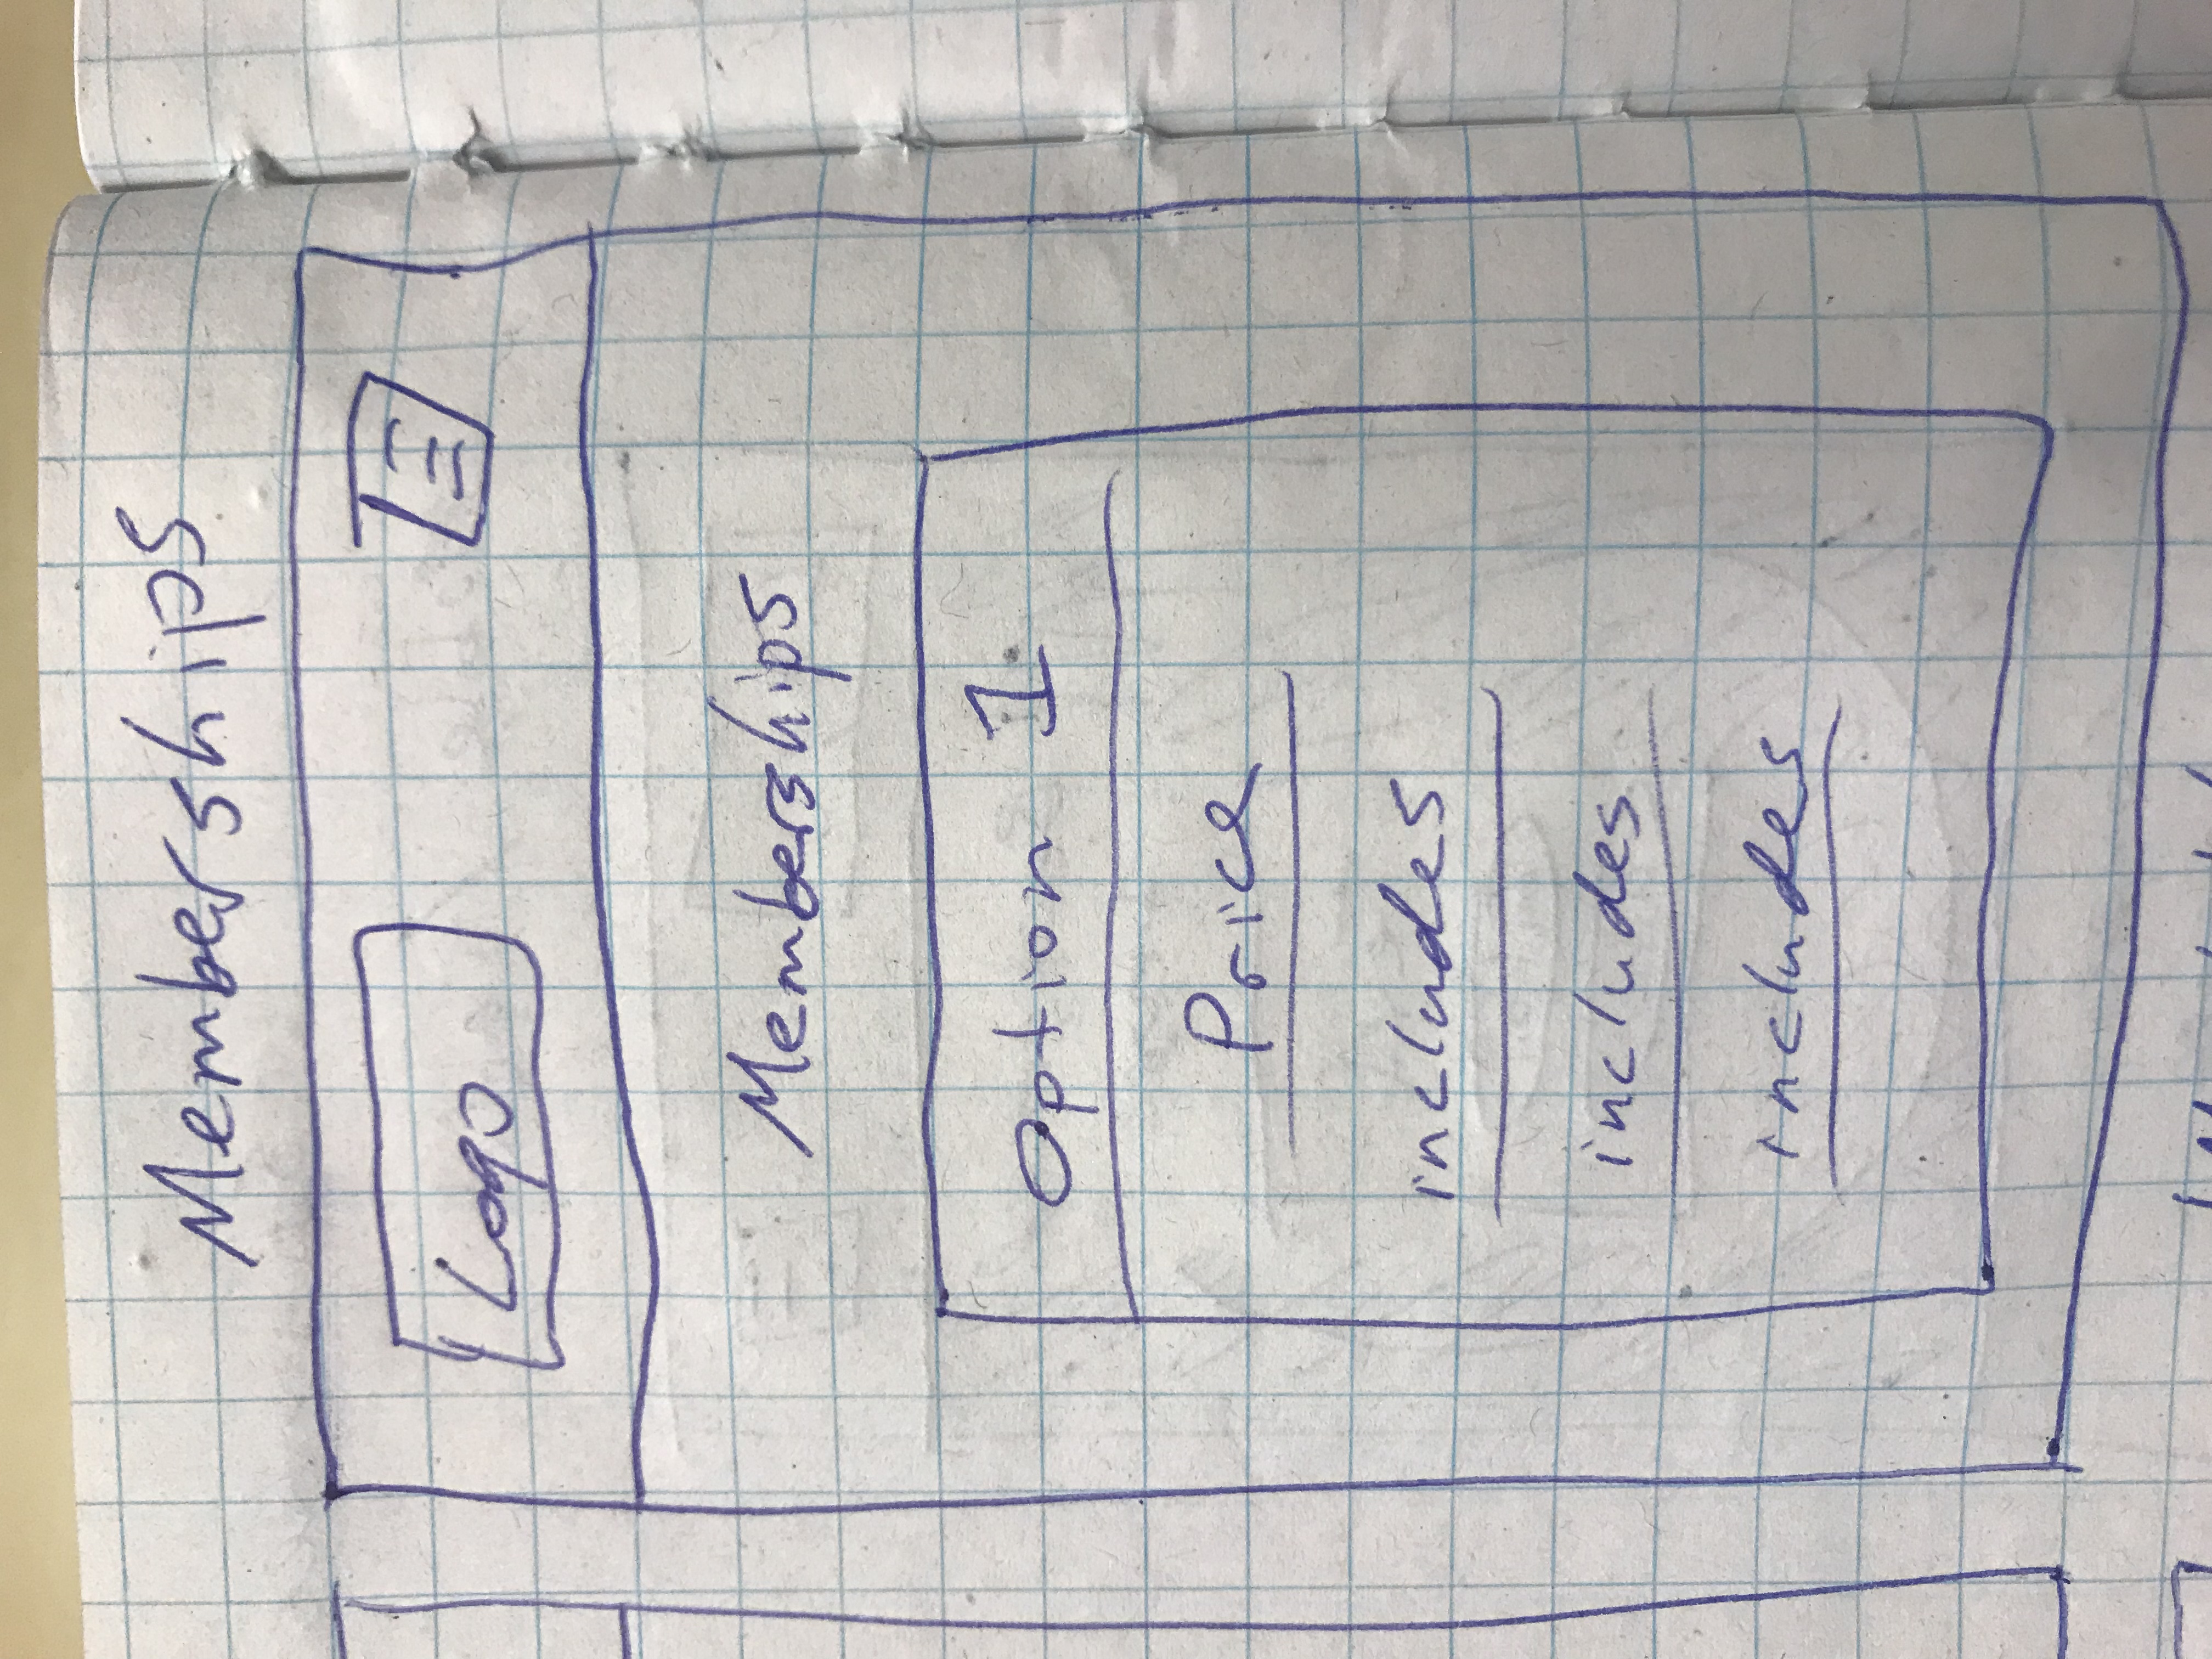 Memberships
Logo
Memberships
Option 1
Price
includes
includes
includes